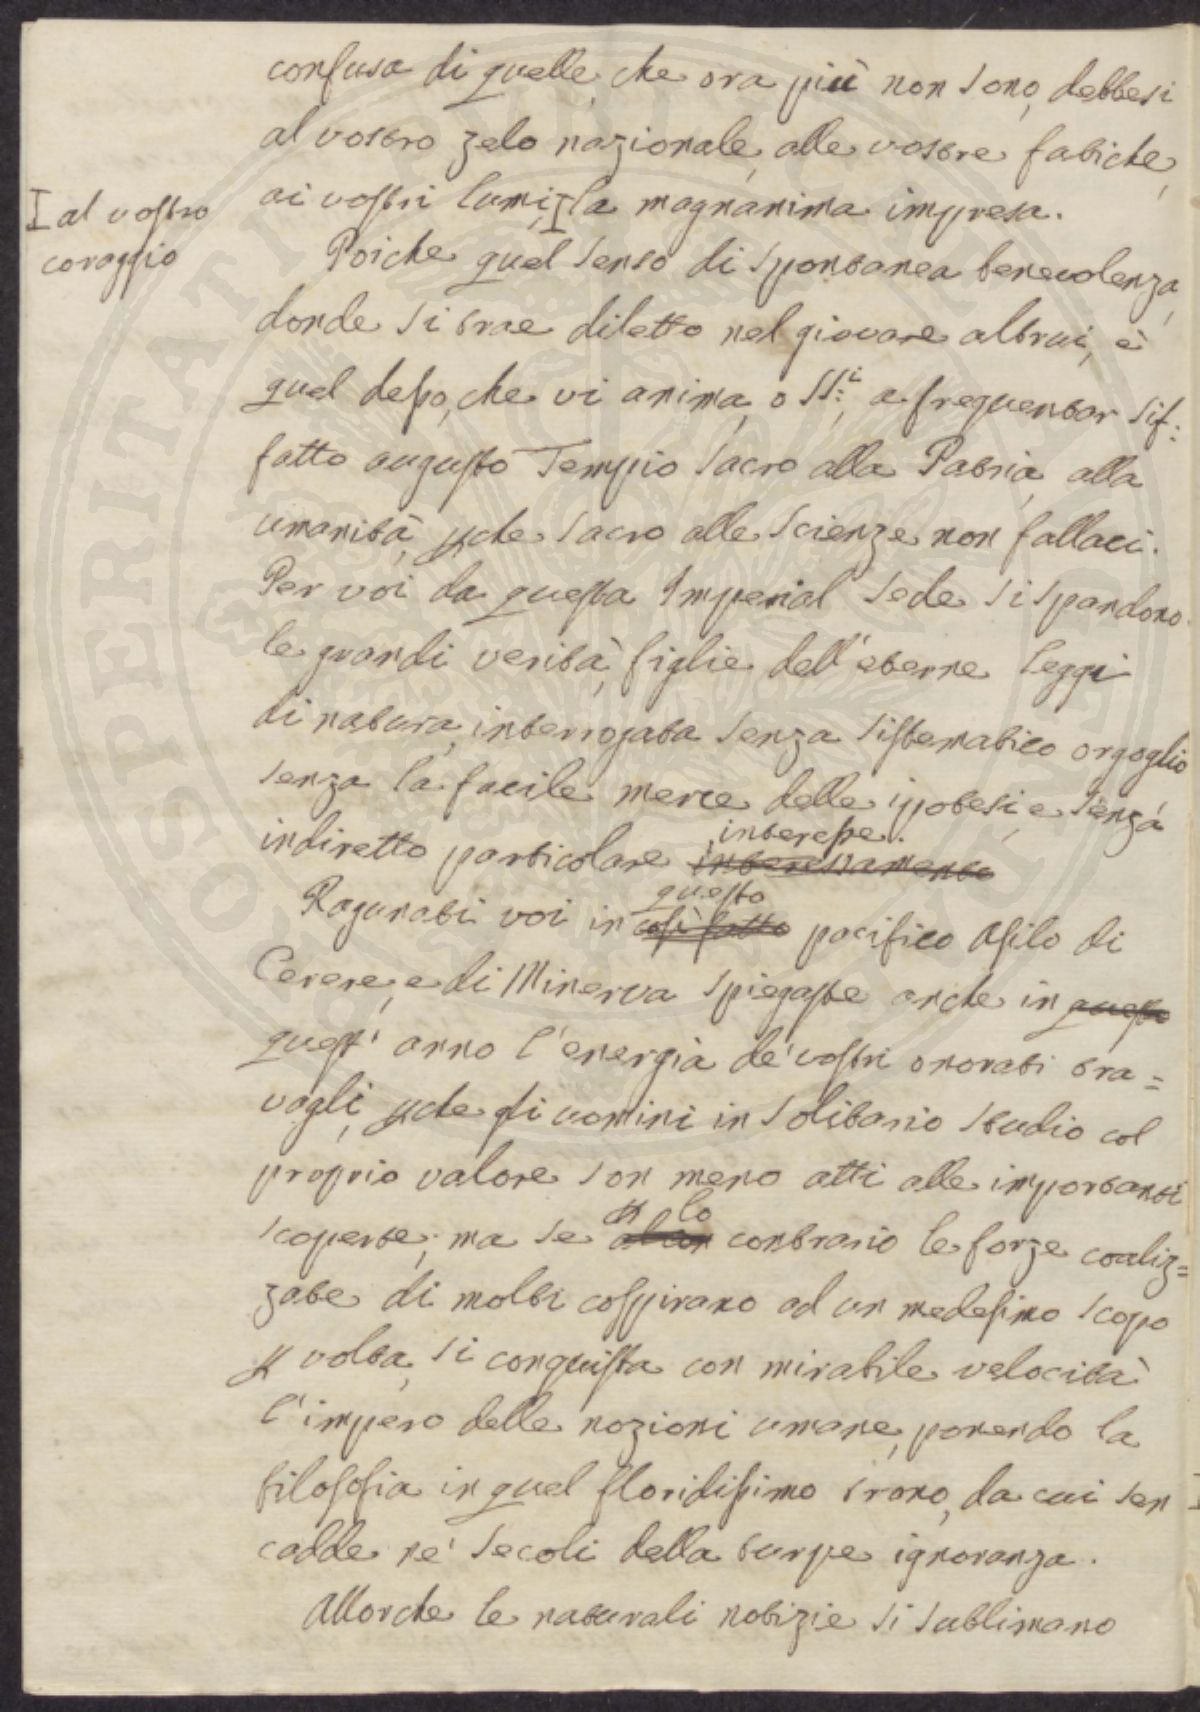 confusa di quelle, che ora più non sono, debbesi
al vostro zelo nazionale, alle vostre fatiche,
ai vostri lumi, la magnanima impresa.
al vostro
coraggio
Poiche quel senso di spontanea benevolenza,
donde si trae diletto nel giovare altrui, è
quel desso, che vi anima, o SS:i, a frequentar sif:
fatto augusto Tempio sacro alla Patria, alla
umanità, pche sacro alle scienze non fallaci.
Per voi da questa Imperial sede si spandono
le grandi verità, figlie dell'eterne leggi
di natura, interrogata senza sistematico orgoglio
senza la facile merce delle ipotesi, e senza
indiretto particolare interessamento
interesse.
Ragunati voi in così fatto pacifico asilo di
questo
Cerere, e di Minerva spiegaste anche in questo
quest' anno l'energia de' vostri onorati tra=
vagli, pche gli uomini in solitario studio col
proprio valore son meno atti alle importanti
scoperte; ma se al con contrario le forze coaliz=
p lo
zate di molti cospirano ad un medesimo scopo
p volta, si conquista con mirabile velocità
l'impero delle nozioni umane, ponendo la
filosofia in quel floridissimo trono, da cui sen
cadde ne' secoli della turpe ignoranza.
Allorche le naturali notizie si sublimano
SOSPERITATI PUBLICAE AUGENDAE